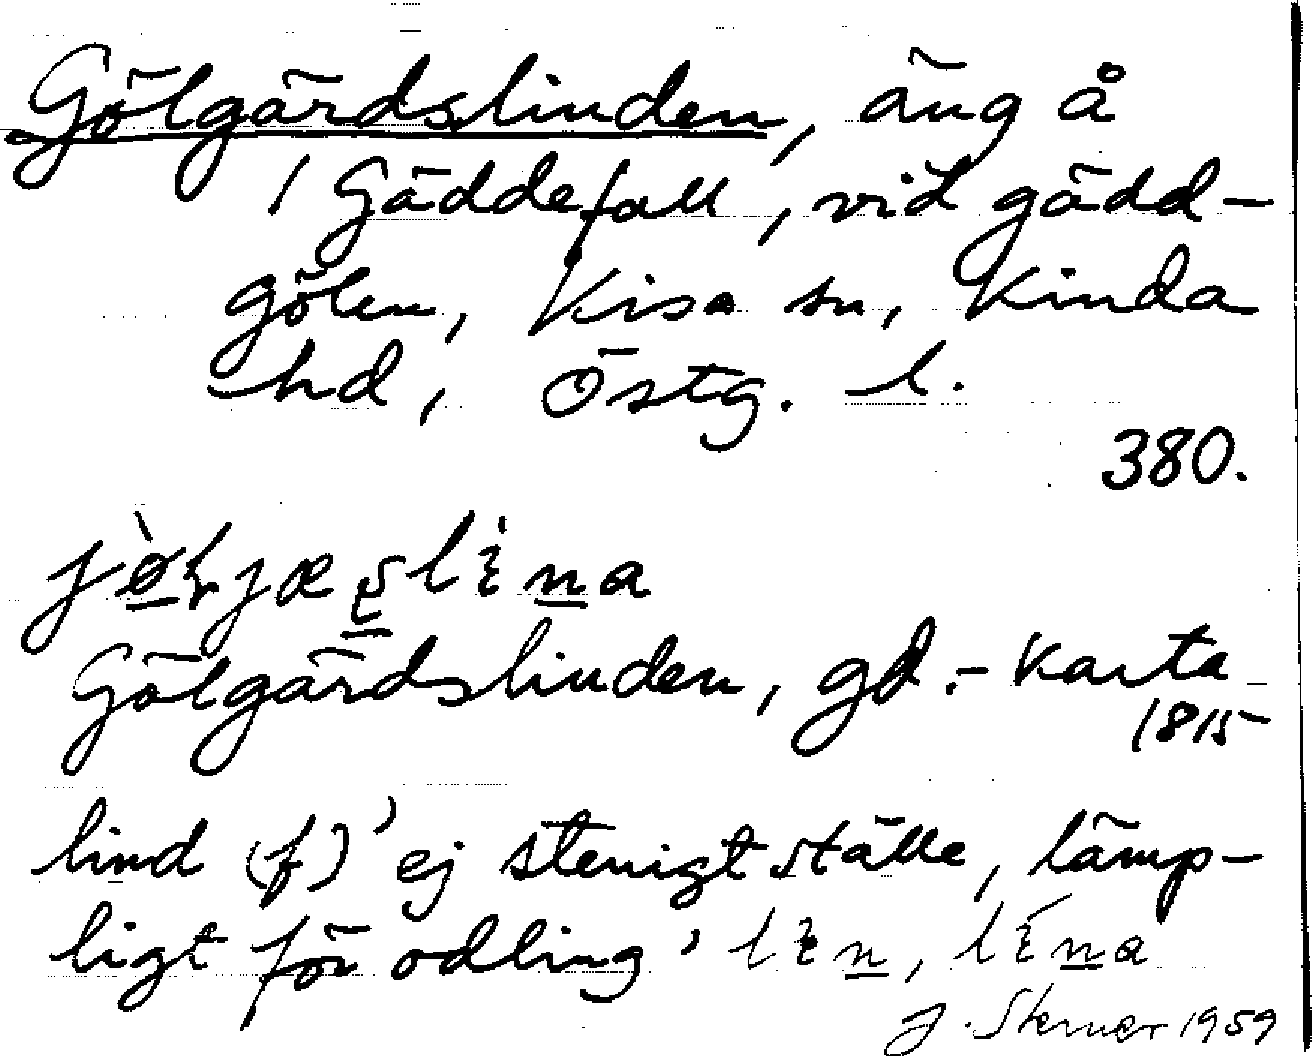 Gölgärdslinden, äng å
/ Gäddefall, vid gädd-
gölen, Kisa sn, Kinda
hd, Östg. l.
380.
Gölgärdslinden, gd.- Karta
1815
lind (f) ’ej stenigt ställe, lämp-
ligt för odling’
J. Sterner 1959